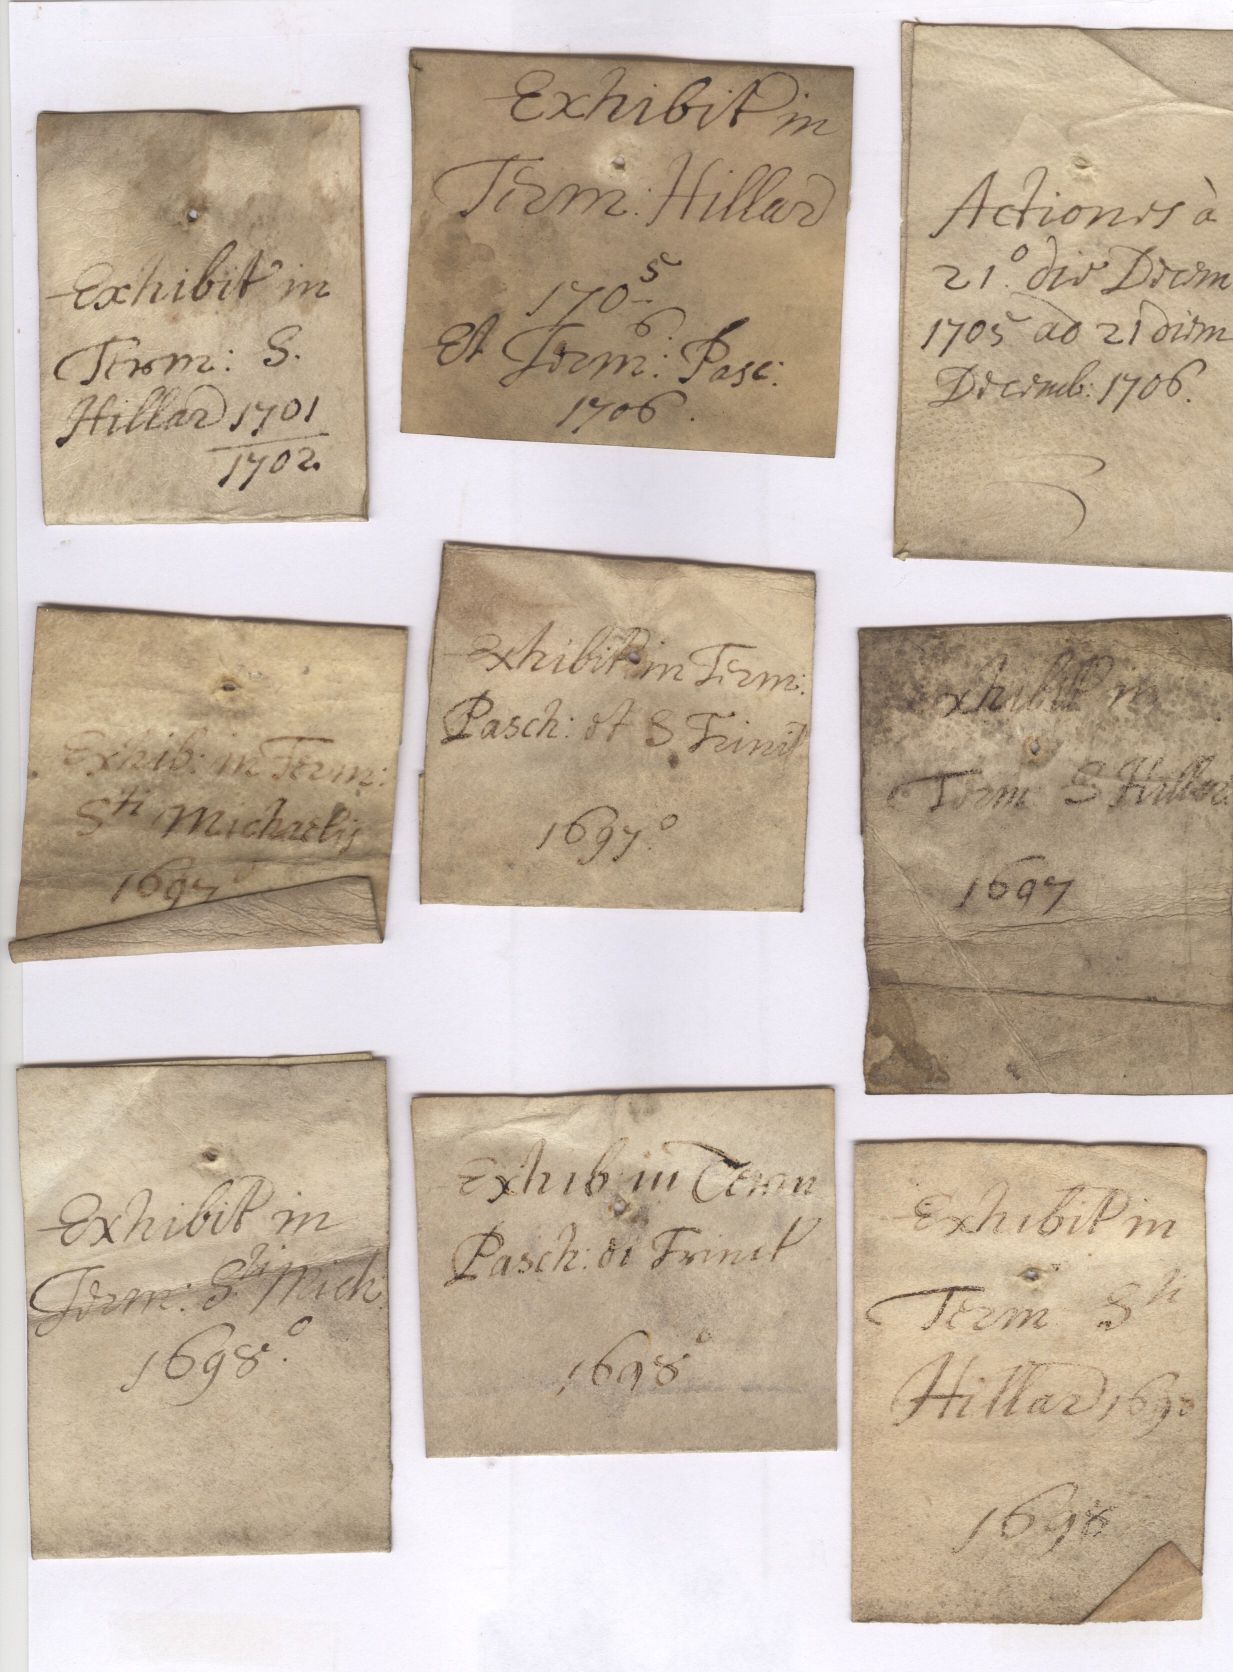 Exhibit in
Term: S.
Hillar 1701
1702.
Exhibit in
Term: Hillar
1705
6
Et Term: Pasc:
1706.
Actiones à
21.º die Decem
1705 ad 21 diem
Decemb: 1706.
Exhib: in Term:
Sti Michaelis
1697º
Exhibit in Term:
Pasch: et S Trinit
1697.º
Exhibit in
Term S Hillar
1697
Exhibit in
Term: Sti Mich:
1698.º
Exhib in Term
Pasch: et Trinit
1698º
Exhibit in
Term Sti
Hillar
1698